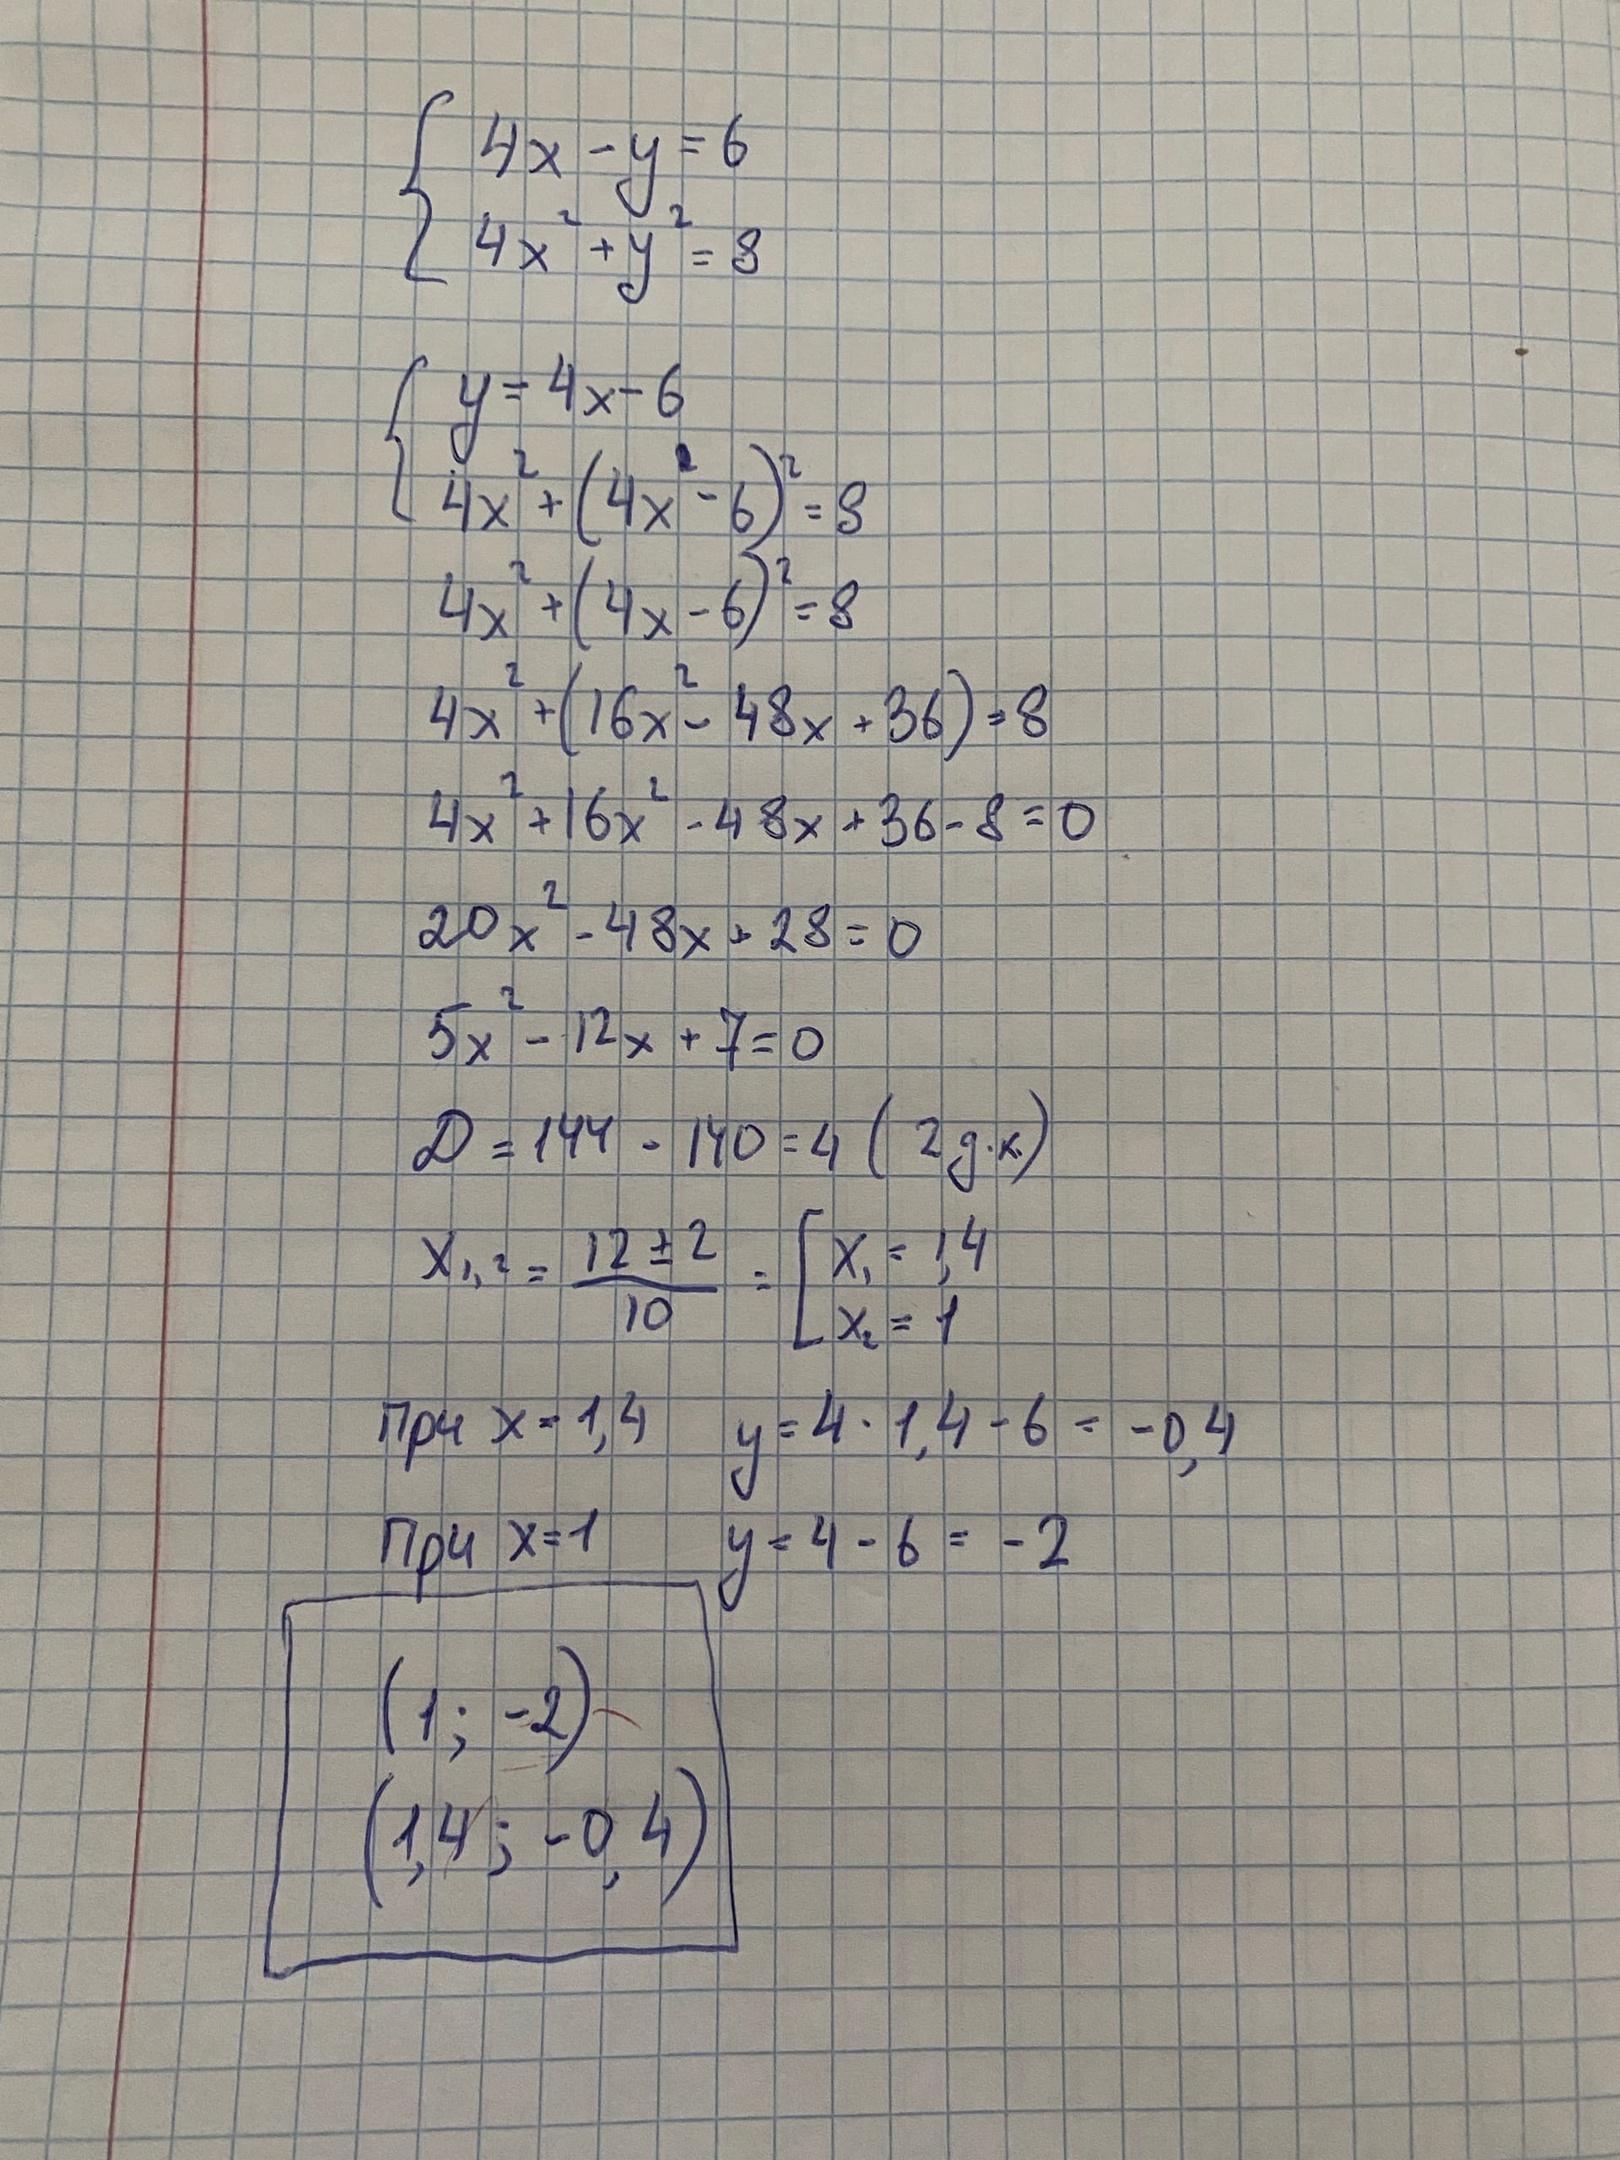 4x - y = 6
4x² + y² = 8
y = 4x - 6
4x² + (4x² - 6)² = 8
4x² + (4x - 6)² = 8
4x² + (16x² - 48x + 36) = 8
4x² + 16x² - 48x + 36 - 8 = 0
20x² - 48x + 28 = 0
5x² - 12x + 7 = 0
D = 144 - 140 = 4 (2 д.к.)
x₁,₂ = (12 ± 2)/10 = [ x₁ = 1,4
x₂ = 1
При x = 1,4 y = 4 · 1,4 - 6 = -0,4
При x = 1 y = 4 - 6 = -2
(1; -2)
(1,4; -0,4)